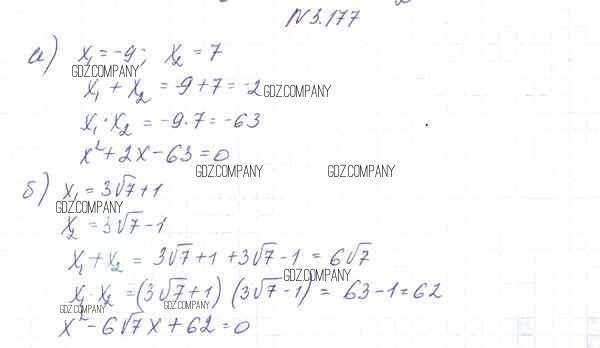 N 3.177
а) x₁ = -9; x₂ = 7
GDZ.COMPANY
x₁ + x₂ = -9+7 = -2
GDZ.COMPANY
x₁·x₂ = -9·7 = -63
x² + 2x - 63 = 0
GDZ.COMPANY GDZ.COMPANY
б) x₁ = 3√7+1
GDZ.COMPANY
x₂ = 3√7-1
x₁+x₂ = 3√7+1+3√7-1 = 6√7
GDZ.COMPANY
x₁·x₂ = (3√7+1)(3√7-1) = 63-1=62
GDZ.COMPANY GDZ.COMPANY
x² - 6√7x + 62 = 0